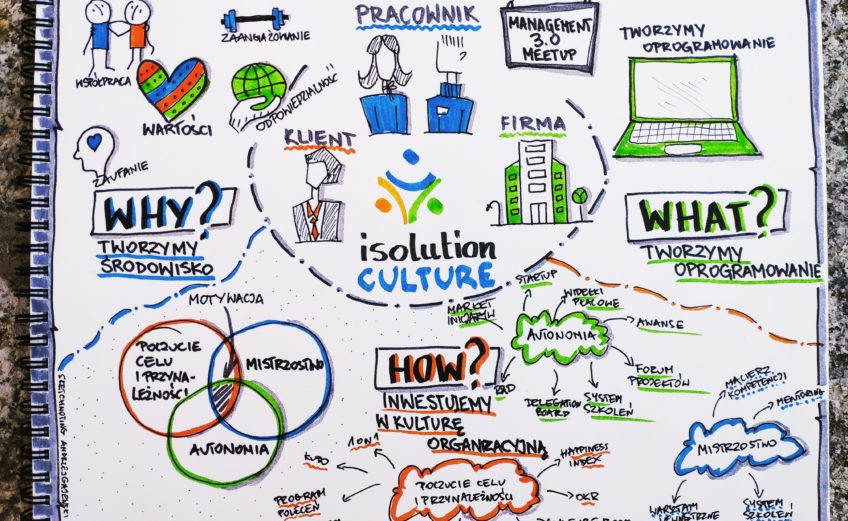 PRACOWNIK
MANAGEMENT
3.0
MEETUP
TWORZYMY
OPROGRAMOWANIE
ZAANGAŻOWANIE
WSPÓŁPRACA
WARTOŚCI
ODPOWIEDZIALNOŚĆ
ZAUFANIE
KLIENT
FIRMA
WHY?
TWORZYMY
ŚRODOWISKO
isolution
CULTURE
WHAT?
TWORZYMY
OPROGRAMOWANIE
MOTYWACJA
POCZUCIE
CELU
I PRZYNA-
LEŻNOŚCI
MISTRZOSTWO
AUTONOMIA
HOW?
INWESTUJEMY
W KULTURĘ
ORGANIZACYJNĄ
AUTONOMIA
MARKET
INICJATYW
STARTUP
WIDEŁKI
PŁACOWE
AWANSE
FORUM
PROJEKTÓW
SYSTEM
SZKOLEŃ
DELEGATION
BOARD
MISTRZOSTWO
MALIERZ
KOMPETENCJI
MENTORING
SYSTEM
SZKOLEŃ
POCZUCIE CELU
I PRZYNALEŻNOŚCI
1 ON 1
KUDO
PROGRAM
POLECEŃ
HAPPINESS
INDEX
OKR
SKETCHNOTING